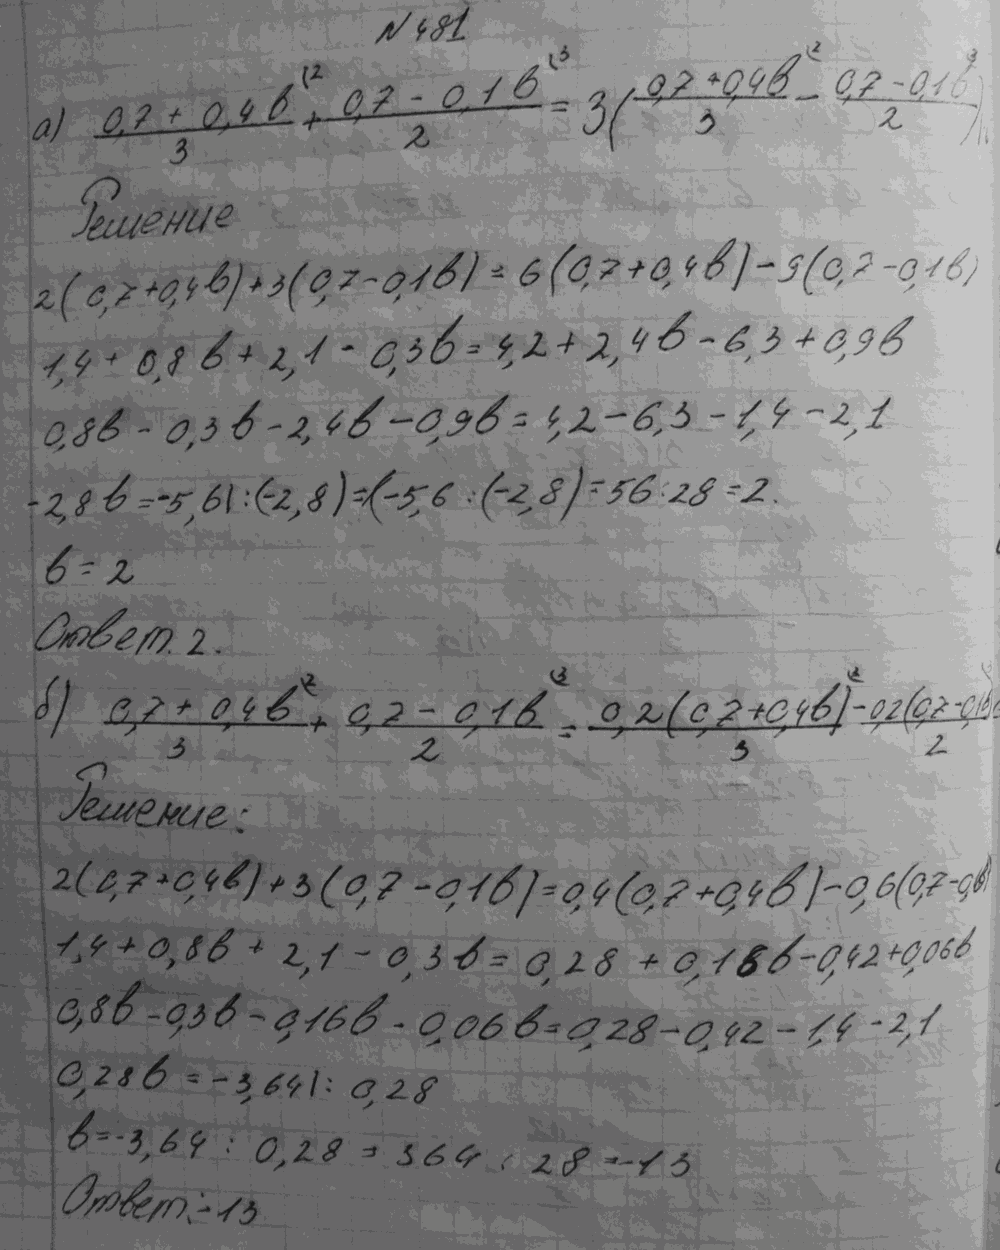 N 481
а) (0,7 + 0,4в)/3 (2 + (0,7 - 0,1в)/2 (3 = 3((0,7+0,4в)/3 (2 - (0,7-0,1в)/2 (3)
Решение
2(0,7+0,4в)+3(0,7-0,1в) = 6(0,7+0,4в)-9(0,7-0,1в)
1,4+0,8в+2,1-0,3в=4,2+2,4в-6,3+0,9в
0,8в-0,3в-2,4в-0,9в=4,2-6,3-1,4-2,1
-2,8в=-5,6|:(-2,8)=(-5,6:(-2,8)=56:28=2.
в=2
Ответ. 2.
б) (0,7+0,4в)/3 (2 + (0,7-0,1в)/2 (3 = 0,2(0,7+0,4в)/3 (2 - 0,2(0,7-0,1в)/2
Решение:
2(0,7+0,4в)+3(0,7-0,1в)=0,4(0,7+0,4в)-0,6(0,7-0,1в)
1,4+0,8в+2,1-0,3в=0,28+0,16в-0,42+0,06в
0,8в-0,3в-0,16в-0,06в=0,28-0,42-1,4-2,1
0,28в=-3,64|:0,28
в=-3,64:0,28=364:28=-13
Ответ:-13